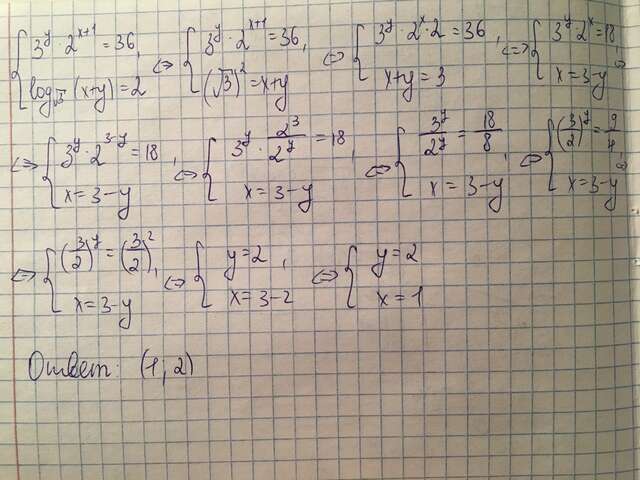 { 3^y · 2^{x+1} = 36, log_{√3} (x+y) = 2 <=> { 3^y · 2^{x+1} = 36, (√3)^2 = x+y <=> { 3^y · 2^x · 2 = 36, x+y = 3 <=> { 3^y · 2^x = 18, x = 3-y <=>
<=> { 3^y · 2^{3-y} = 18, x = 3-y <=> { 3^y · 2^3/2^y = 18, x = 3-y <=> { 3^y/2^y = 18/8, x = 3-y <=> { (3/2)^y = 9/4, x = 3-y <=>
<=> { (3/2)^y = (3/2)^2, x = 3-y <=> { y = 2, x = 3-2 <=> { y = 2 x = 1
Ответ: (1, 2)